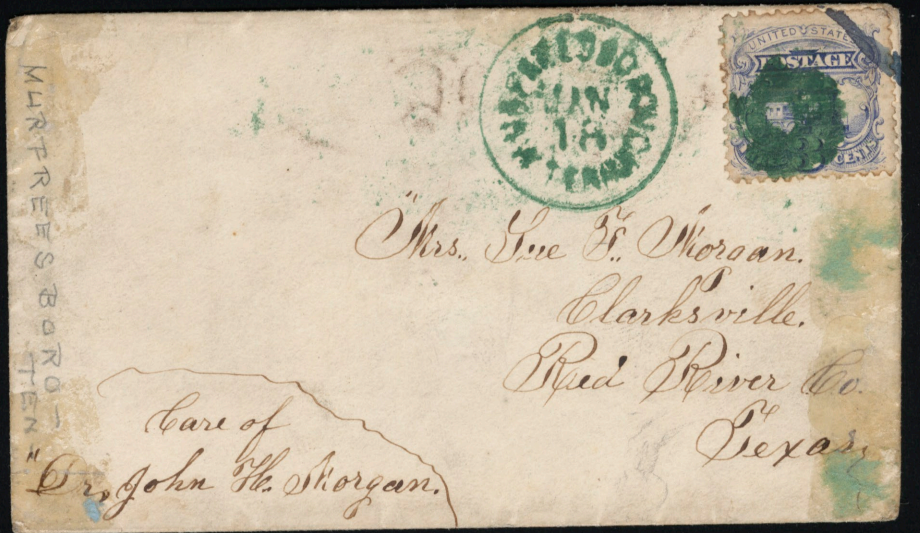 MURFREESBORO-
TENN
MURFREESBOROUGH
JAN
18
TENN.
UNITED STATES
POSTAGE
CENTS
Mrs. Sue F. Morgan.
Clarksville.
Red River Co.
Texas,
Care of
Dr. John H. Morgan.